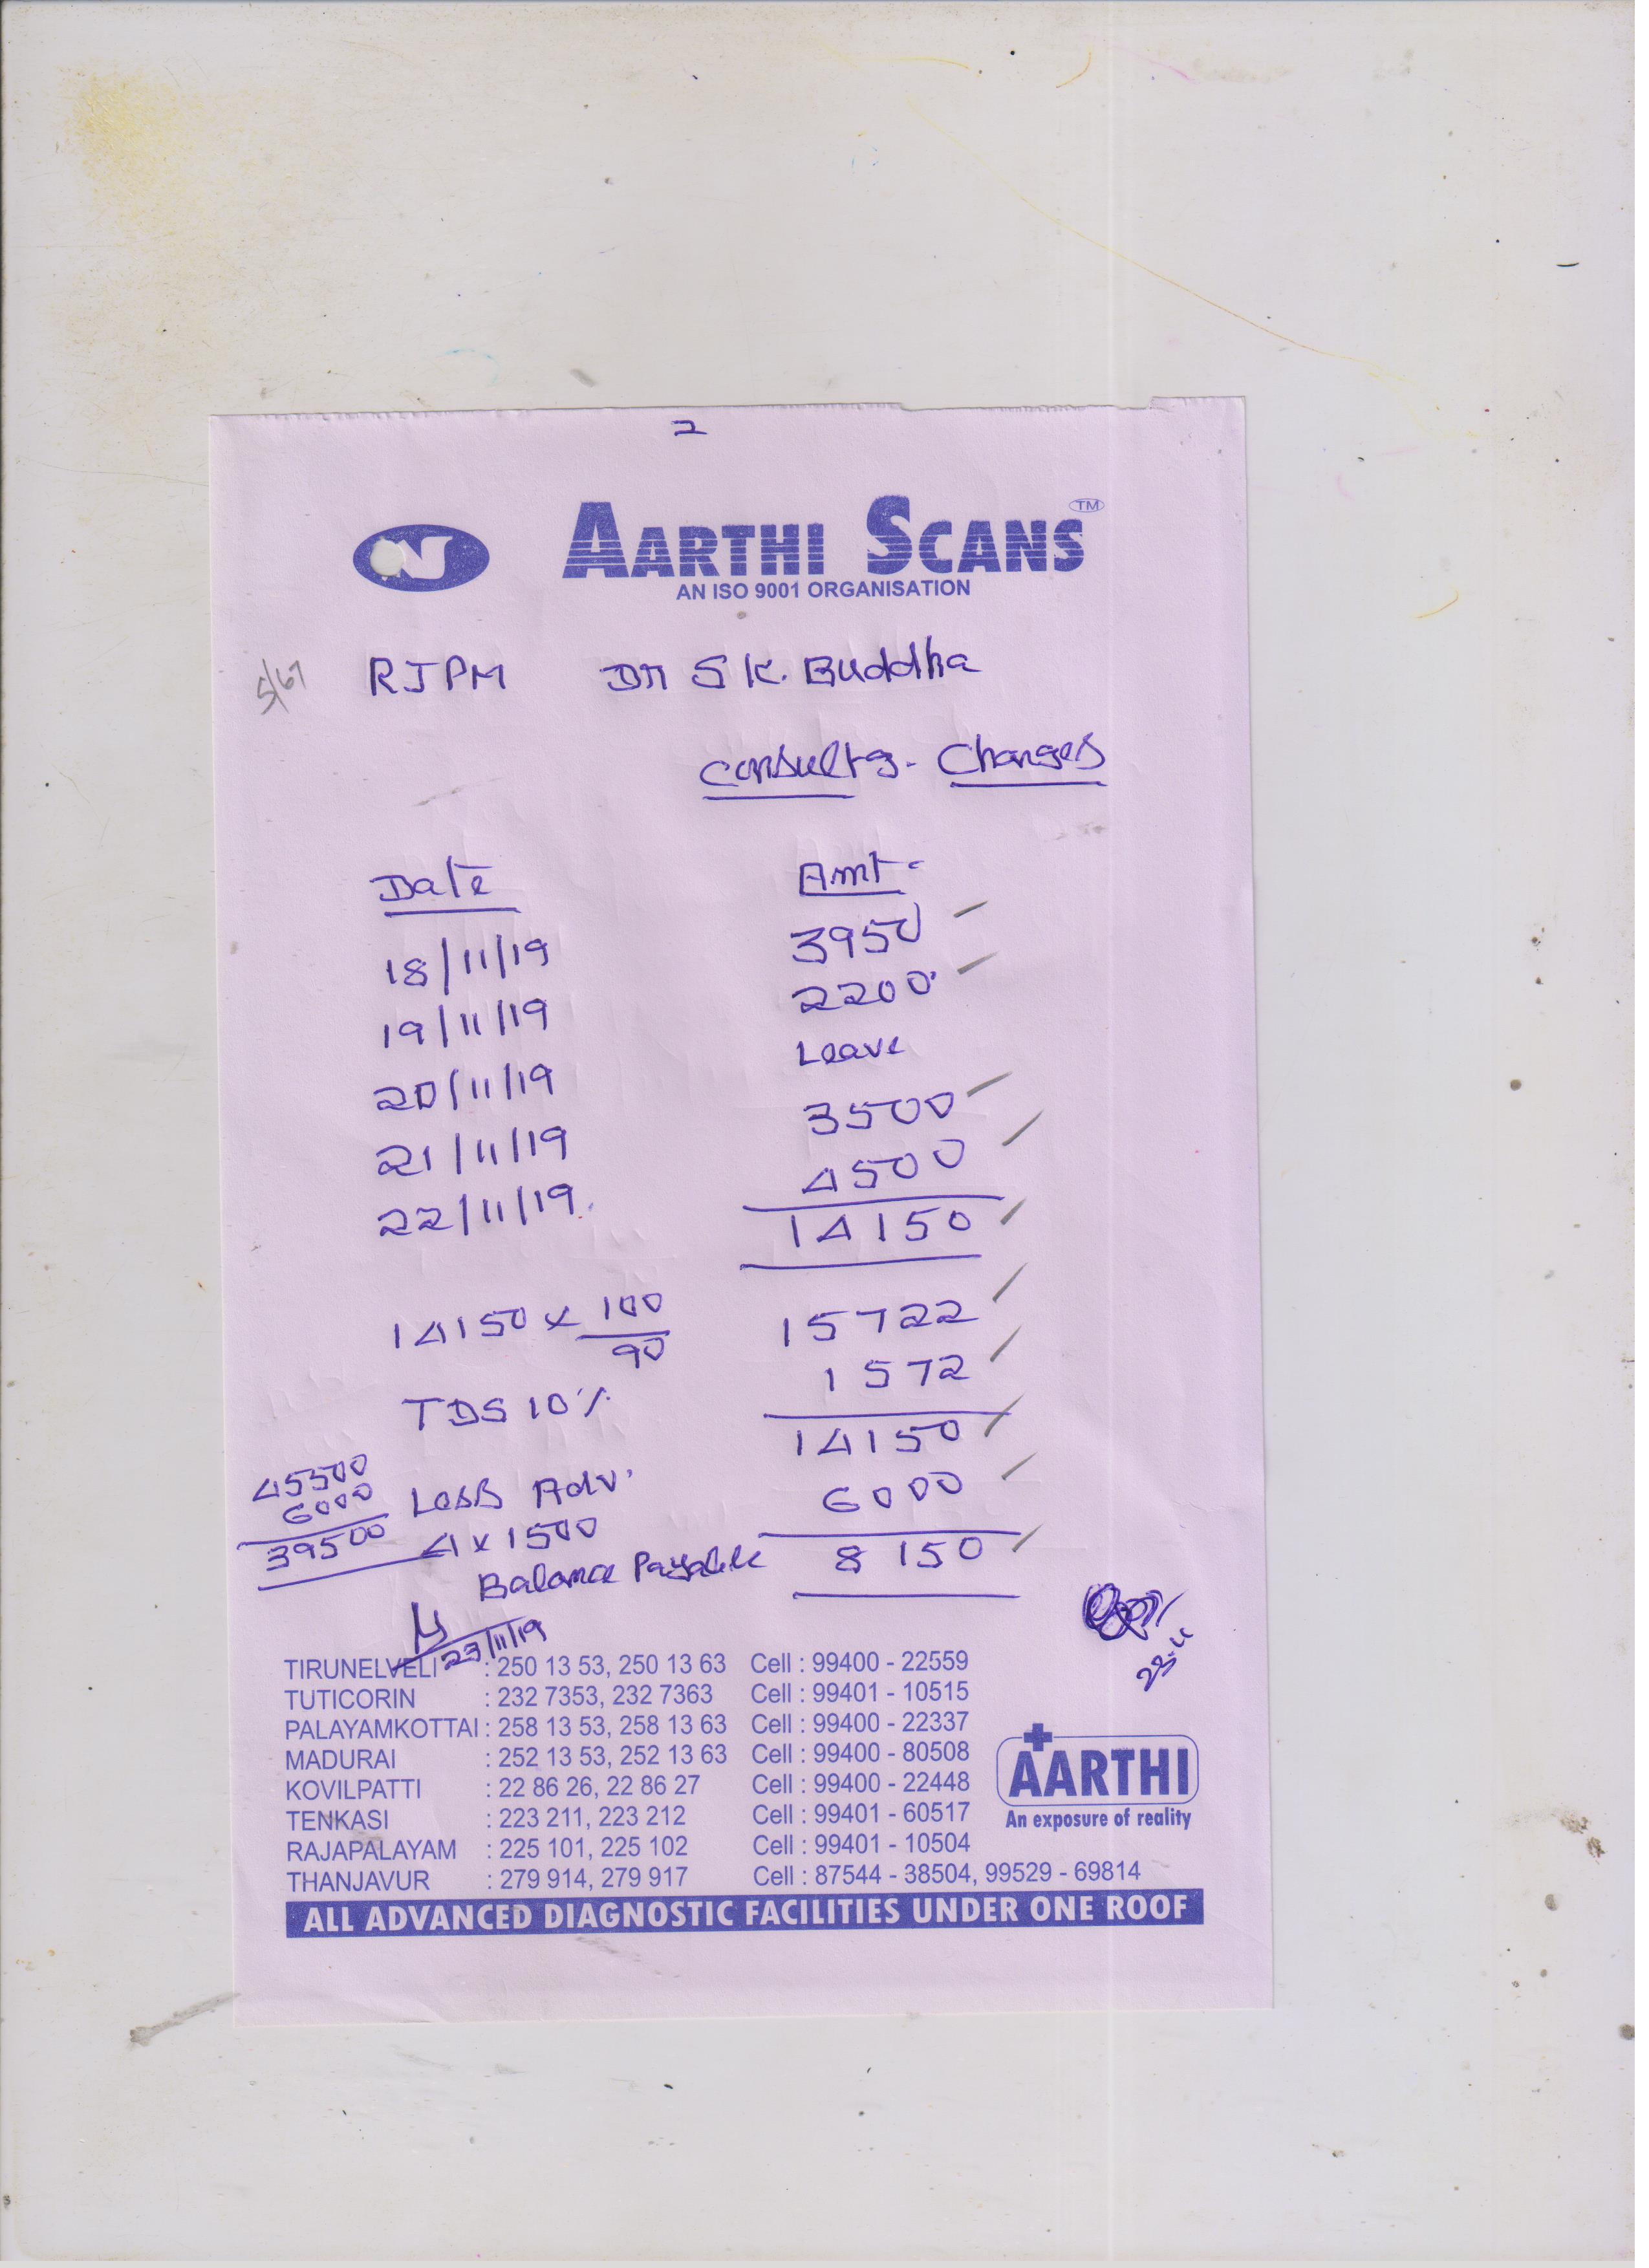 2
AARTHI SCANS TM
AN ISO 9001 ORGANISATION
5/67 RJPM Dr S K. Buddha
Consultg. Charges
Date Amt.
18/11/19 3950
19/11/19 2200
20/11/19 Leave
21/11/19 3500
22/11/19. 4500
14150
14150 x 100/90 15722
1572
TDS 10%
14150
45500
6000
39500
Less Adv. 6000
4 x 1500
Balance Payable 8150
23/11/19
TIRUNELVELI : 250 13 53, 250 13 63 Cell : 99400 - 22559
TUTICORIN : 232 7353, 232 7363 Cell : 99401 - 10515
PALAYAMKOTTAI : 258 13 53, 258 13 63 Cell : 99400 - 22337
MADURAI : 252 13 53, 252 13 63 Cell : 99400 - 80508
KOVILPATTI : 22 86 26, 22 86 27 Cell : 99400 - 22448
TENKASI : 223 211, 223 212 Cell : 99401 - 60517
RAJAPALAYAM : 225 101, 225 102 Cell : 99401 - 10504
THANJAVUR : 279 914, 279 917 Cell : 87544 - 38504, 99529 - 69814
AARTHI
An exposure of reality
ALL ADVANCED DIAGNOSTIC FACILITIES UNDER ONE ROOF